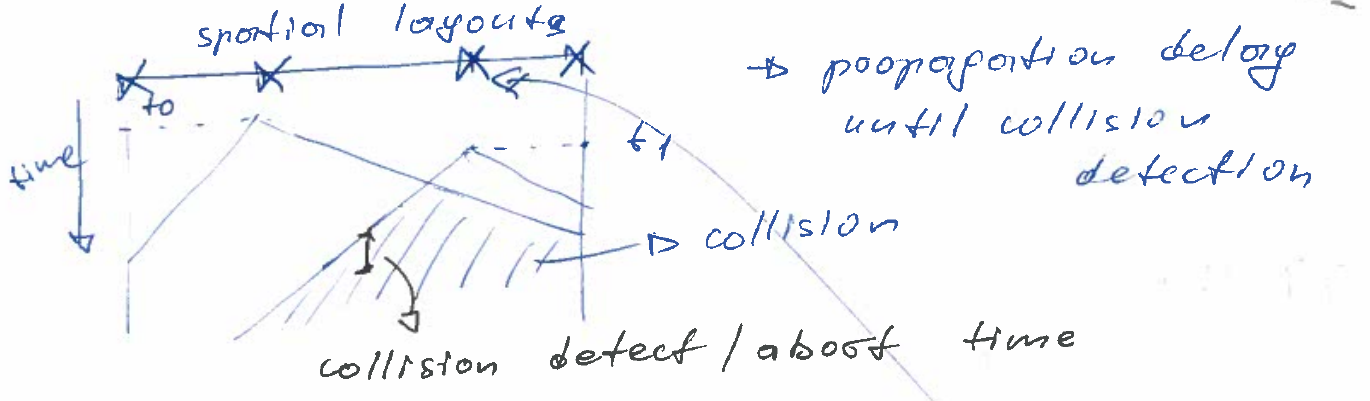 spatial layouts
t0
time
t1
→ propagation delay
until collision
detection
collision
collision detect / abort time